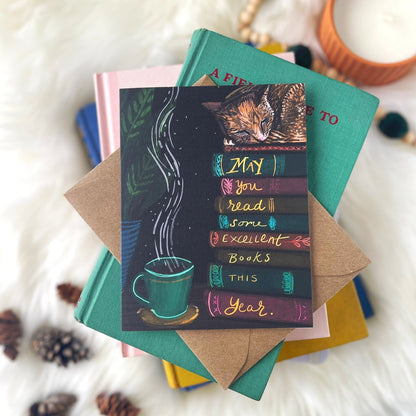 A FIE
E TO
MAY
you
read
some
EXCELLENT
BOOKS
THIS
Year.